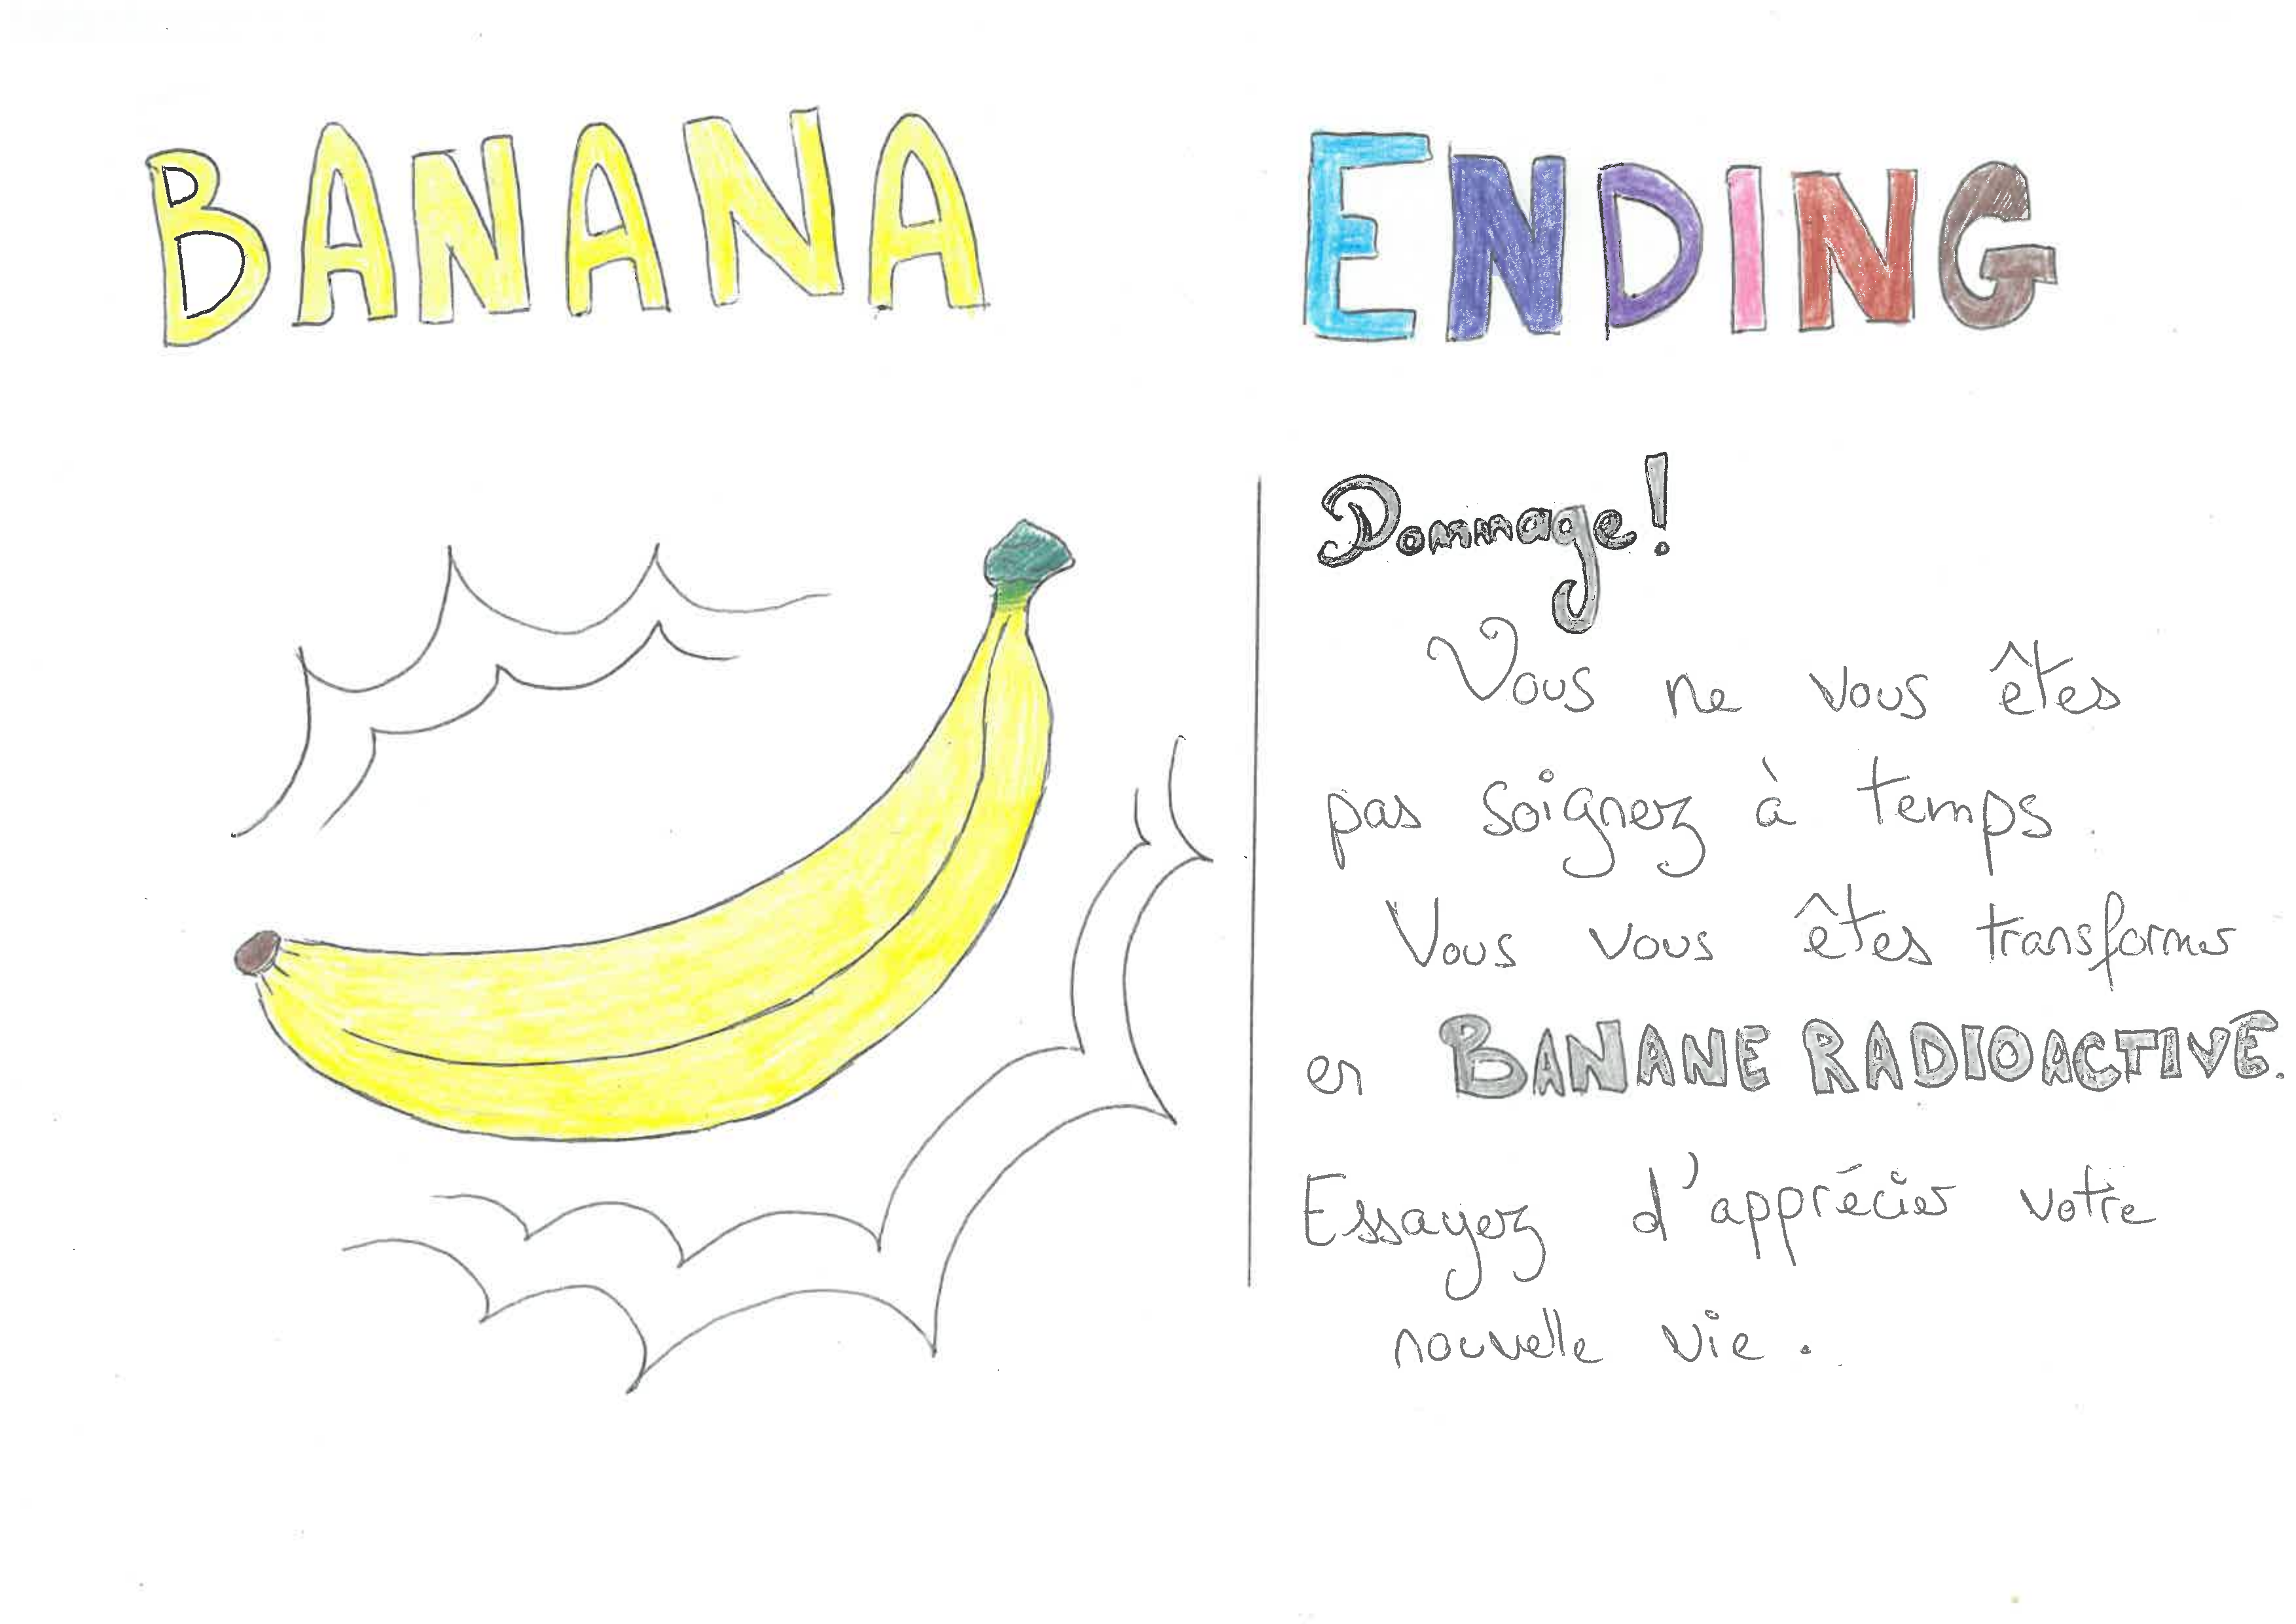 BANANA ENDING
Dommage!
Vous ne vous êtes
pas soignez à temps.
Vous vous êtes transformer
en BANANE RADIOACTIVE.
Essayez d'apprécier votre
nouvelle vie.